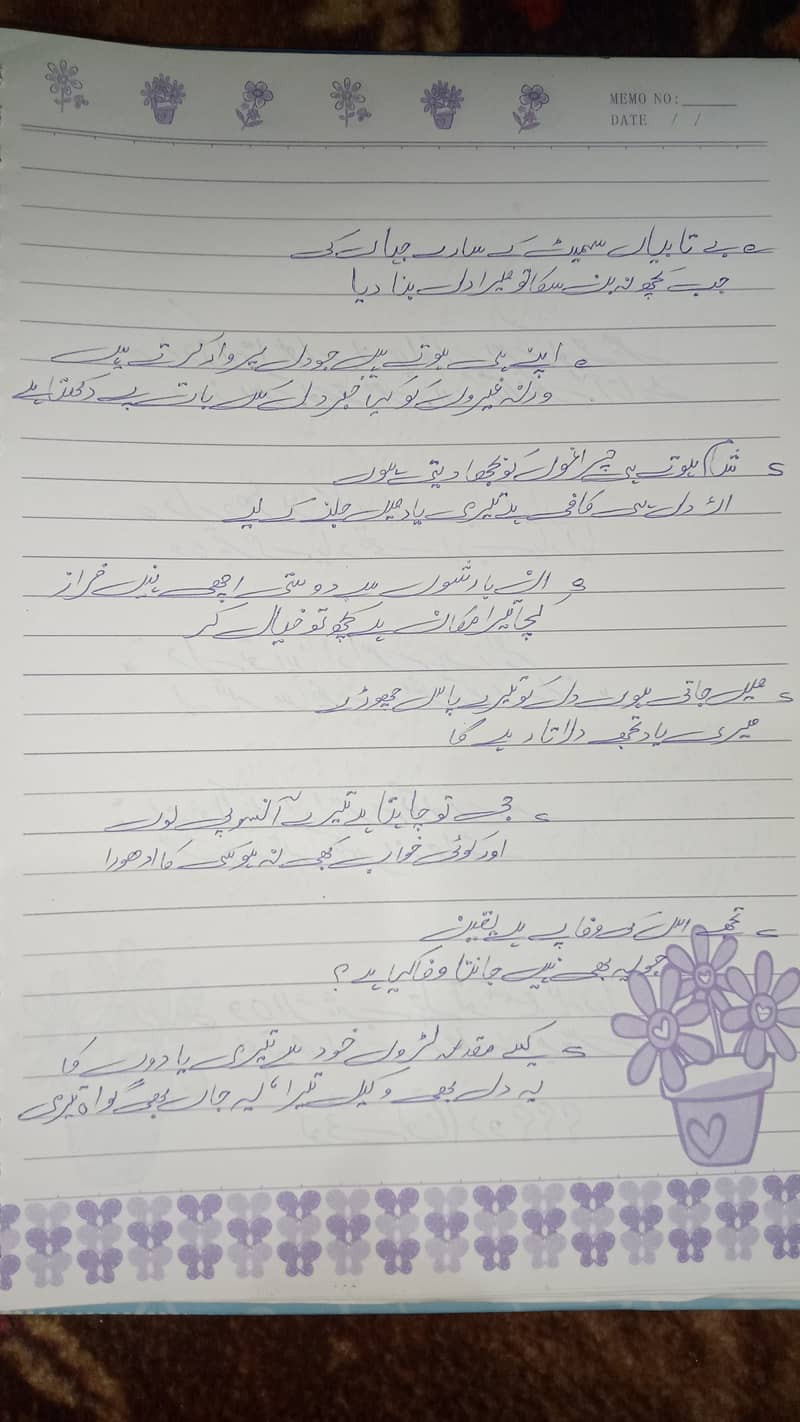 MEMO NO:
DATE / /
بے تابیاں سمیٹ کے سارے جہان کی
جب کچھ نہ بن سکا تو میرا دل بنا دیا
اپنے ہی ہوتے ہیں جو دل پر وار کرتے ہیں
ورنہ غیروں کو کیا خبر دل کس بات پے دکھتا ہے
شام ہوتے ہی چراغوں کو بجھا دیتی ہوں
اک دل ہی کافی ہے تیری یاد میں جلنے کے لیے
ان بارشوں سے دوستی اچھی نہیں فراز
کچا تیرا مکان ہے کچھ تو خیال کر
میں جاتی ہوں دل کو تیرے پاس چھوڑے
میری یاد تجھے دلاتا رہے گا
جی تو چاہتا ہے تیرے آنسو پی لوں
اور کوئی خواب بھی نہ ہو کسی کا ادھورا
تجھے اس کی وفا پے ہے یقین
جو یہ بھی نہیں جانتا وفا کیا ہے؟
کیسے مقدمہ لڑوں خود سے تیری یادوں کا
یہ دل بھی وکیل تیرا، یہ جاں بھی گواہ تیری